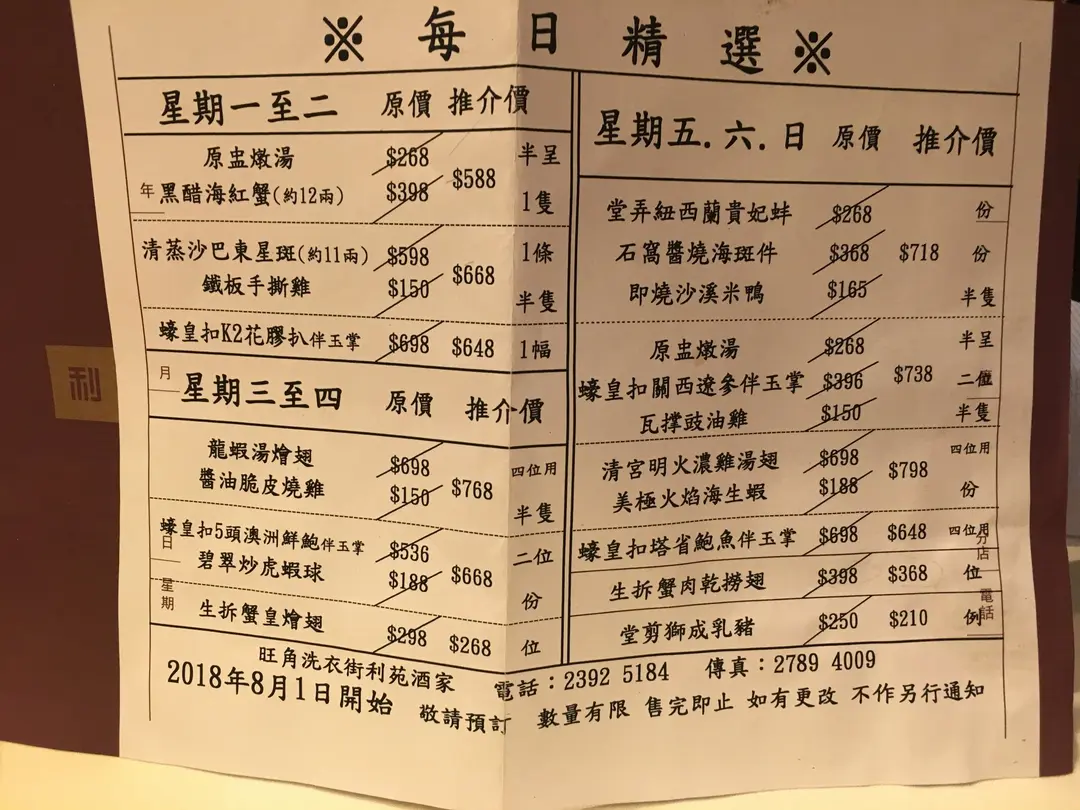 ※ 每日精選 ※
星期一至二 原價 推介價
原盅燉湯 $268 半呈
黑醋海紅蟹(約12兩) $398 $588 1隻
清蒸沙巴東星斑(約11兩) $598 1條
鐵板手撕雞 $150 $668 半隻
蠔皇扣K2花膠扒伴玉掌 $698 $648 1幅
星期三至四 原價 推介價
龍蝦湯燴翅 $698 四位用
醬油脆皮燒雞 $150 $768 半隻
蠔皇扣5頭澳洲鮮鮑伴玉掌 $536 二位
碧翠炒虎蝦球 $188 $668 份
生拆蟹皇燴翅 $298 $268 位
星期五.六.日 原價 推介價
堂弄紐西蘭貴妃蚌 $268 份
石窩醬燒海斑件 $368 $718 份
即燒沙溪米鴨 $165 半隻
原盅燉湯 $268 半呈
蠔皇扣關西遼參伴玉掌 $396 $738 二位
瓦撐豉油雞 $150 半隻
清宮明火濃雞湯翅 $698 四位用
美極火焰海生蝦 $188 $798 份
蠔皇扣塔省鮑魚伴玉掌 $698 $648 四位用
生拆蟹肉乾撈翅 $398 $368 位
堂剪獅成乳豬 $250 $210 例
旺角洗衣街利苑酒家 電話：2392 5184 傳真：2789 4009
2018年8月1日開始 敬請預訂 數量有限 售完即止 如有更改 不作另行通知
年
月
日
星期
分店
電話
利